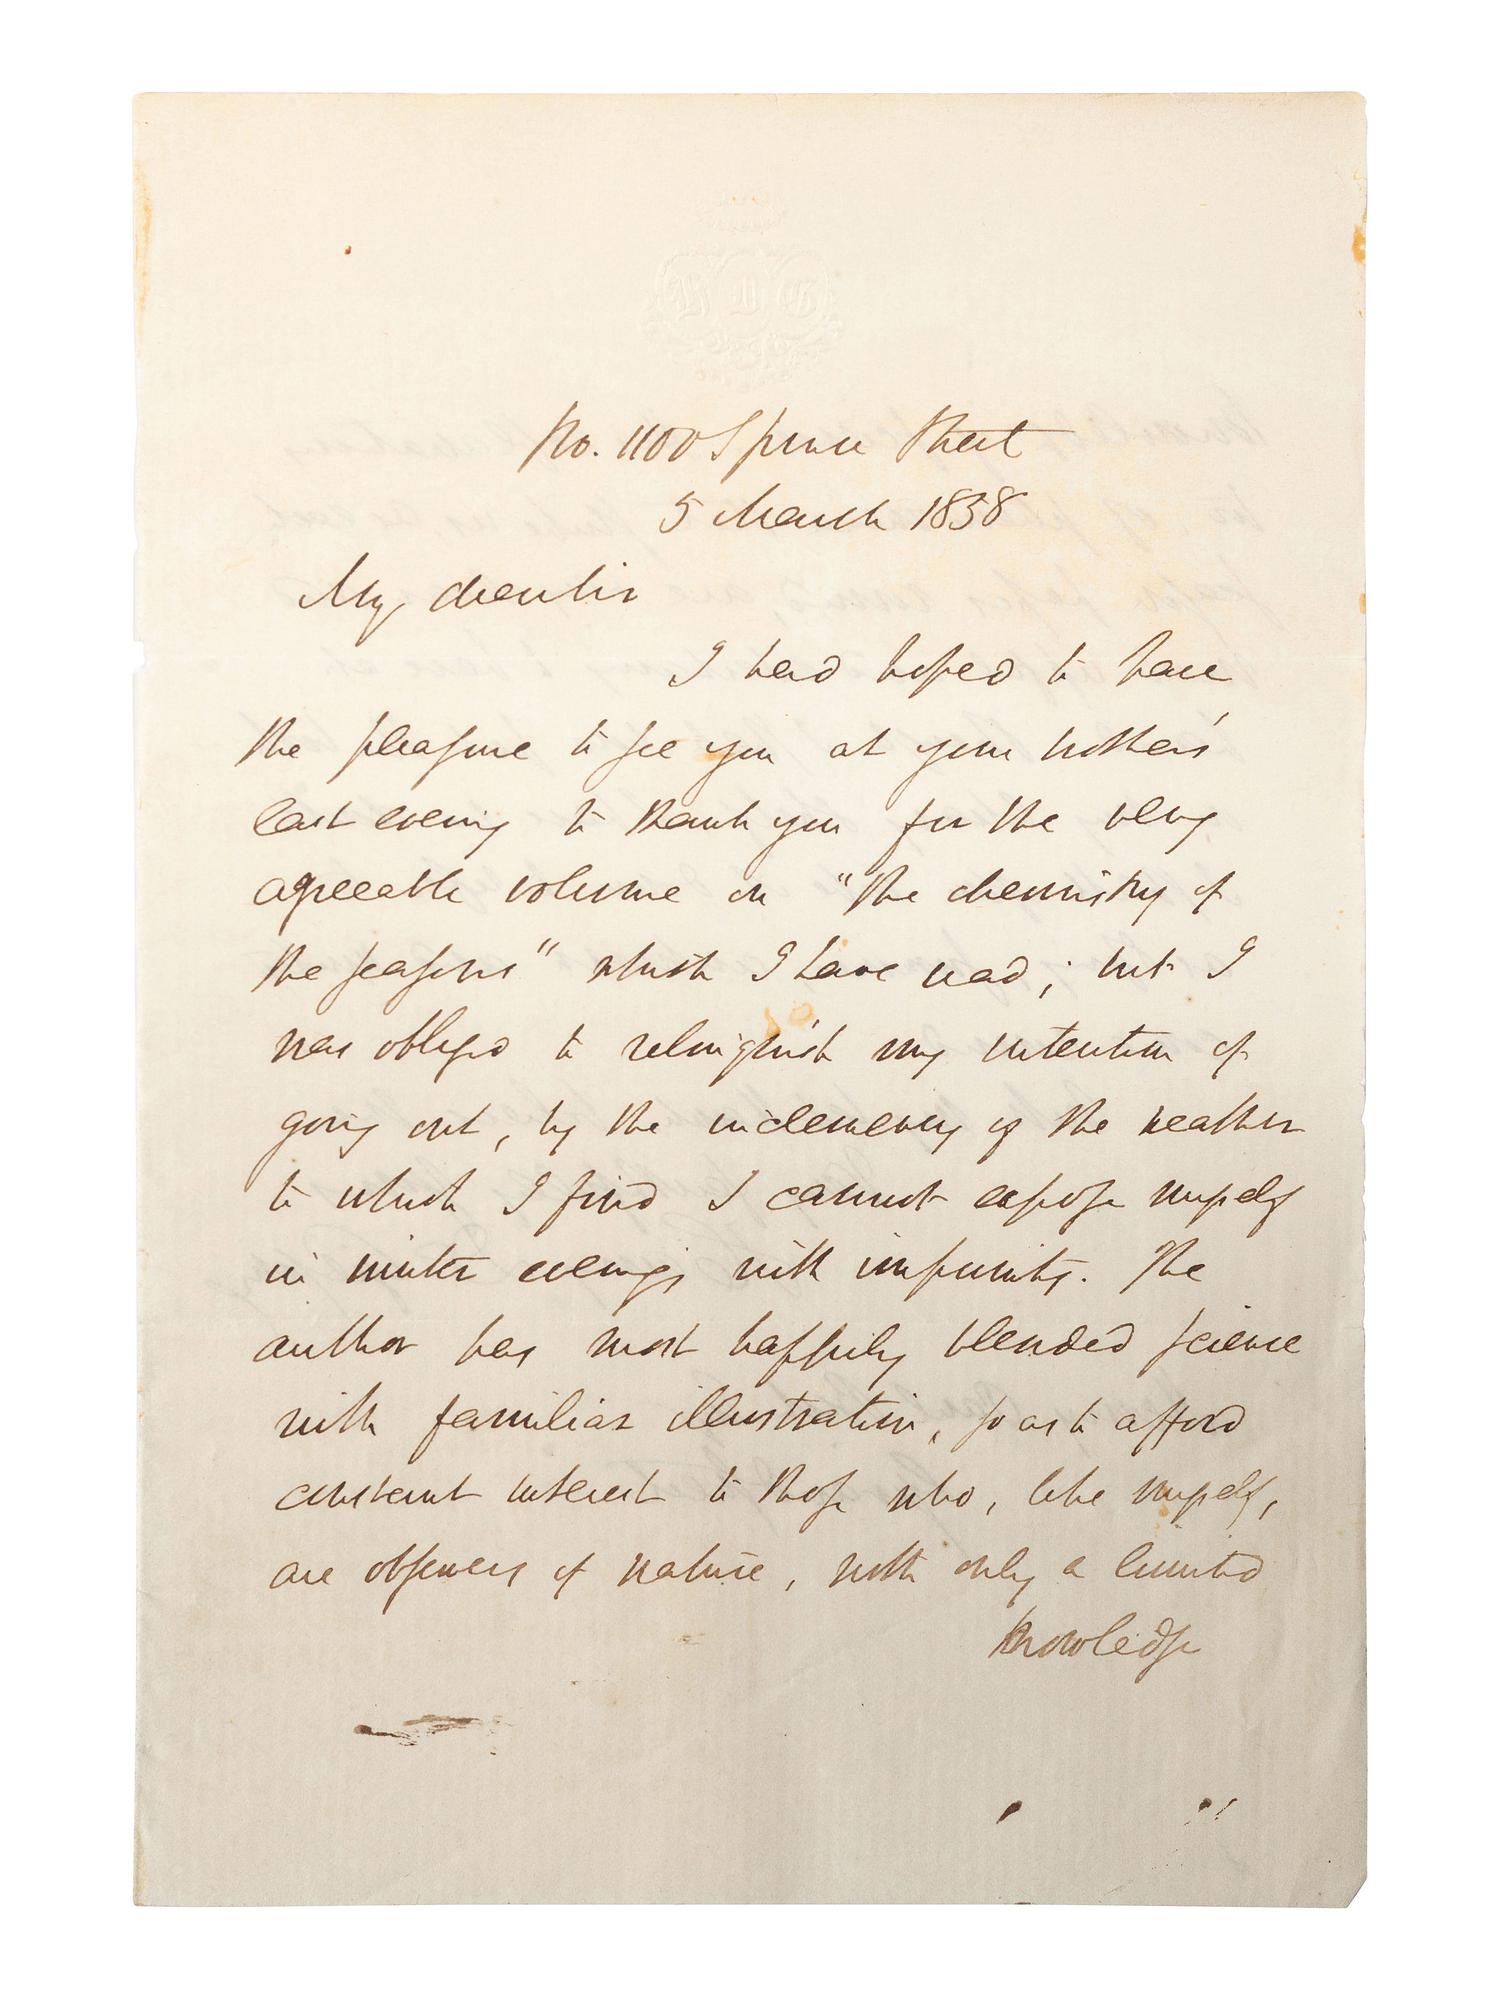 H D G
No. 1100 Spruce Street
5 March 1858
My dear Sir
I had hoped to have
the pleasure to see you at your brother's
last evening to thank you for the very
agreeable volume on "the chemistry of
the seasons" which I have read; but I
was obliged to relinquish my intention of
going out, by the inclemency of the weather
to which I find I cannot expose myself
in winter evenings with impunity. The
author has most happily blended science
with familiar illustration, so as to afford
constant interest to those who, like myself,
are observers of nature, with only a limited
knowledge